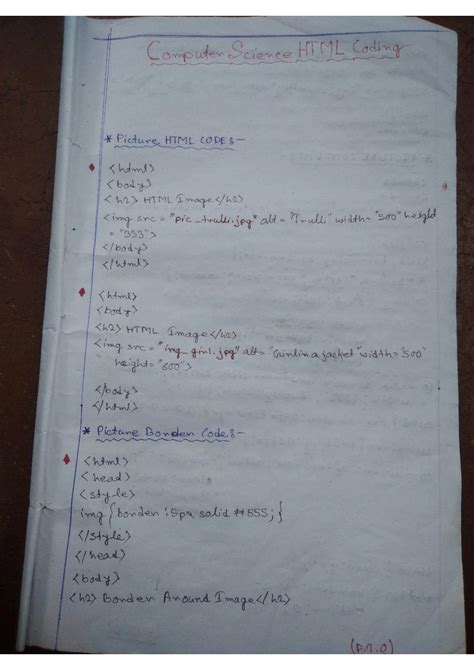 Computer Science HTML Coding
* Picture HTML CODE:-
<html>
<body>
<h2> HTML Image</h2>
<img src = "pic_trulli.jpg" alt = "Trulli" width= "500" height
= "333">
</body>
</html>
<html>
<body>
<h2> HTML Image</h2>
<img src = "img_girl.jpg" alt= "Girl in a jacket" width= "500"
height= "600">
</body>
</html>
* Picture Border Code:-
<html>
<head>
<style>
img { border : 5px solid #555; }
</style>
</head>
<body>
<h2> Border Around Image</h2>
(P.T.O)